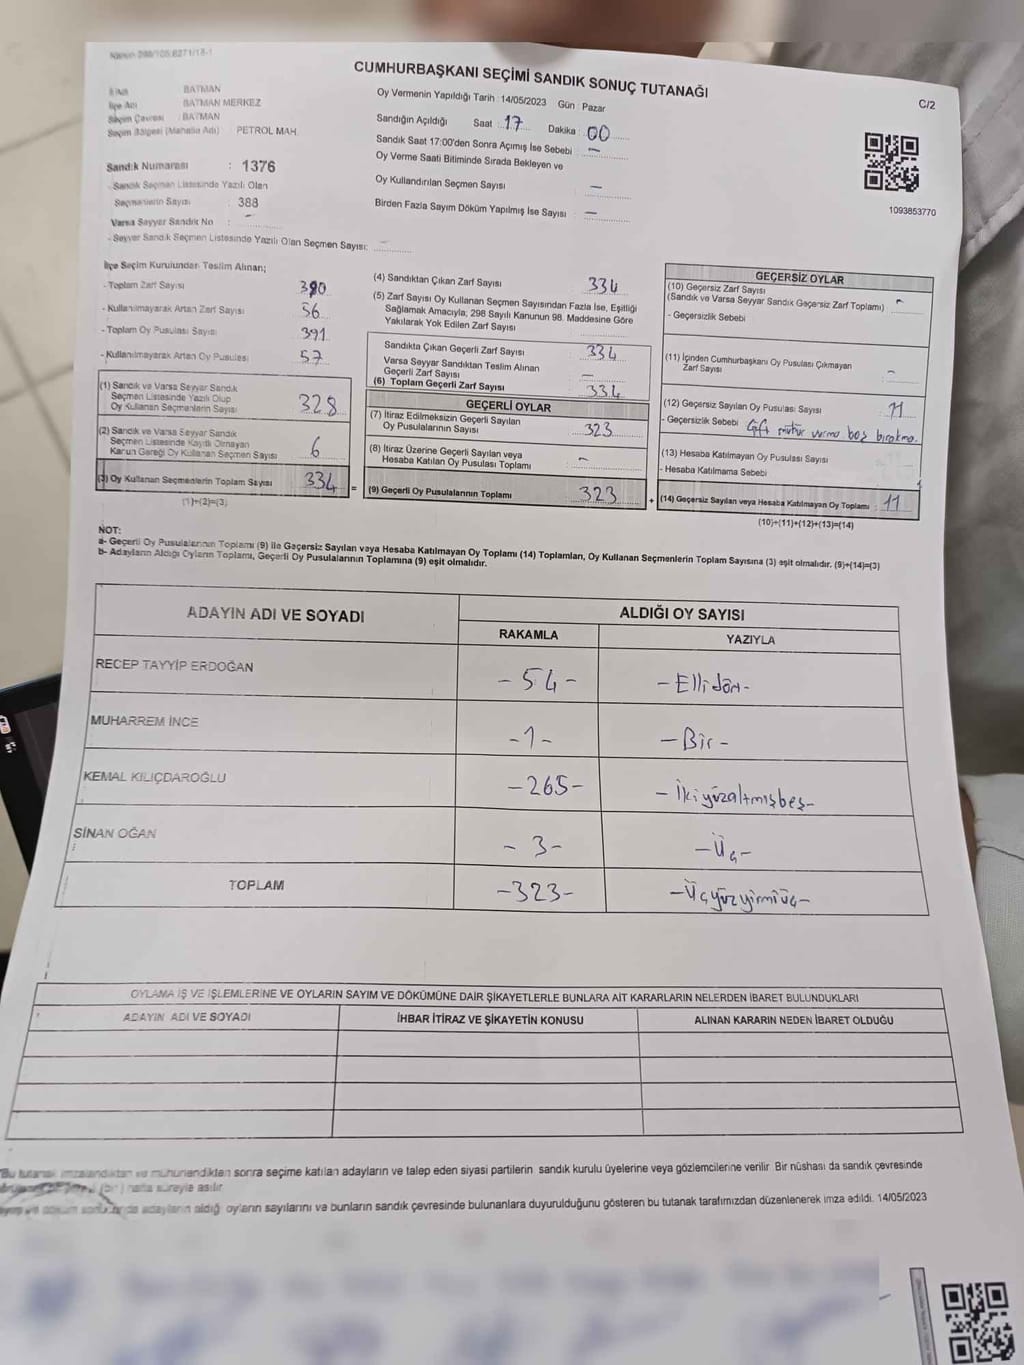 CUMHURBAŞKANI SEÇİMİ SANDIK SONUÇ TUTANAĞI
C/2
İl Adı BATMAN
İlçe Adı BATMAN MERKEZ
Seçim Çevresi : BATMAN
Seçim Bölgesi (Mahalle Adı) : PETROL MAH.
Sandık Numarası : 1376
- Sandık Seçmen Listesinde Yazılı Olan
Seçmenlerin Sayısı : 388
Varsa Seyyar Sandık No : -
- Seyyar Sandık Seçmen Listesinde Yazılı Olan Seçmen Sayısı:
Oy Vermenin Yapıldığı Tarih : 14/05/2023 Gün : Pazar
Sandığın Açıldığı Saat : 17 Dakika : 00
Sandık Saat 17:00'den Sonra Açımış İse Sebebi : -
Oy Verme Saati Bitiminde Sırada Bekleyen ve
Oy Kullandırılan Seçmen Sayısı : -
Birden Fazla Sayım Döküm Yapılmış İse Sayısı : -
1093853770
İlçe Seçim Kurulundan Teslim Alınan;
- Toplam Zarf Sayısı : 390
- Kullanılmayarak Artan Zarf Sayısı : 56
- Toplam Oy Pusulası Sayısı : 391
- Kullanılmayarak Artan Oy Pusulası : 57
(1) Sandık ve Varsa Seyyar Sandık
Seçmen Listesinde Yazılı Olup
Oy Kullanan Seçmenlerin Sayısı : 328
(2) Sandık ve Varsa Seyyar Sandık
Seçmen Listesinde Kayıtlı Olmayan
Kanun Gereği Oy Kullanan Seçmen Sayısı : 6
(3) Oy Kullanan Seçmenlerin Toplam Sayısı : 334
(1)+(2)=(3)
(4) Sandıktan Çıkan Zarf Sayısı : 334
(5) Zarf Sayısı Oy Kullanan Seçmen Sayısından Fazla İse, Eşitliği
Sağlamak Amacıyla, 298 Sayılı Kanunun 98. Maddesine Göre
Yakılarak Yok Edilen Zarf Sayısı :
Sandıkta Çıkan Geçerli Zarf Sayısı : 334
Varsa Seyyar Sandıktan Teslim Alınan
Geçerli Zarf Sayısı : -
(6) Toplam Geçerli Zarf Sayısı : 334
GEÇERLİ OYLAR
(7) İtiraz Edilmeksizin Geçerli Sayılan
Oy Pusulalarının Sayısı : 323
(8) İtiraz Üzerine Geçerli Sayılan veya
Hesaba Katılan Oy Pusulası Toplamı : -
= (9) Geçerli Oy Pusulalarının Toplamı : 323
GEÇERSİZ OYLAR
(10) Geçersiz Zarf Sayısı
(Sandık ve Varsa Seyyar Sandık Geçersiz Zarf Toplamı) : -
- Geçersizlik Sebebi
(11) İçinden Cumhurbaşkanı Oy Pusulası Çıkmayan
Zarf Sayısı : -
(12) Geçersiz Sayılan Oy Pusulası Sayısı : 11
- Geçersizlik Sebebi Çift mühür vurma boş bırakma.
(13) Hesaba Katılmayan Oy Pusulası Sayısı
- Hesaba Katılmama Sebebi
+ (14) Geçersiz Sayılan veya Hesaba Katılmayan Oy Toplamı : 11
(10)+(11)+(12)+(13)=(14)
NOT:
a- Geçerli Oy Pusulalarının Toplamı (9) ile Geçersiz Sayılan veya Hesaba Katılmayan Oy Toplamı (14) Toplamları, Oy Kullanan Seçmenlerin Toplam Sayısına (3) eşit olmalıdır. (9)+(14)=(3)
b- Adayların Aldığı Oyların Toplamı, Geçerli Oy Pusulalarının Toplamına (9) eşit olmalıdır.
ADAYIN ADI VE SOYADI ALDIĞI OY SAYISI
RAKAMLA YAZIYLA
RECEP TAYYİP ERDOĞAN -54- -Ellidört-
MUHARREM İNCE -1- -Bir-
KEMAL KILIÇDAROĞLU -265- -İkiyüzaltmışbeş-
SİNAN OĞAN -3- -Üç-
TOPLAM -323- -Üçyüzyirmiüç-
OYLAMA İŞ VE İŞLEMLERİNE VE OYLARIN SAYIM VE DÖKÜMÜNE DAİR ŞİKAYETLERLE BUNLARA AİT KARARLARIN NELERDEN İBARET BULUNDUKLARI
ADAYIN ADI VE SOYADI İHBAR İTİRAZ VE ŞİKAYETİN KONUSU ALINAN KARARIN NEDEN İBARET OLDUĞU
Bu tutanak imzalandıktan ve mühürlendikten sonra seçime katılan adayların ve talep eden siyasi partilerin sandık kurulu üyelerine veya gözlemcilerine verilir. Bir nüshası da sandık çevresinde
(bir) hafta süreyle asılır.
adayların aldığı oyların sayılarını ve bunların sandık çevresinde bulunanlara duyurulduğunu gösteren bu tutanak tarafımızdan düzenlenerek imza edildi. 14/05/2023